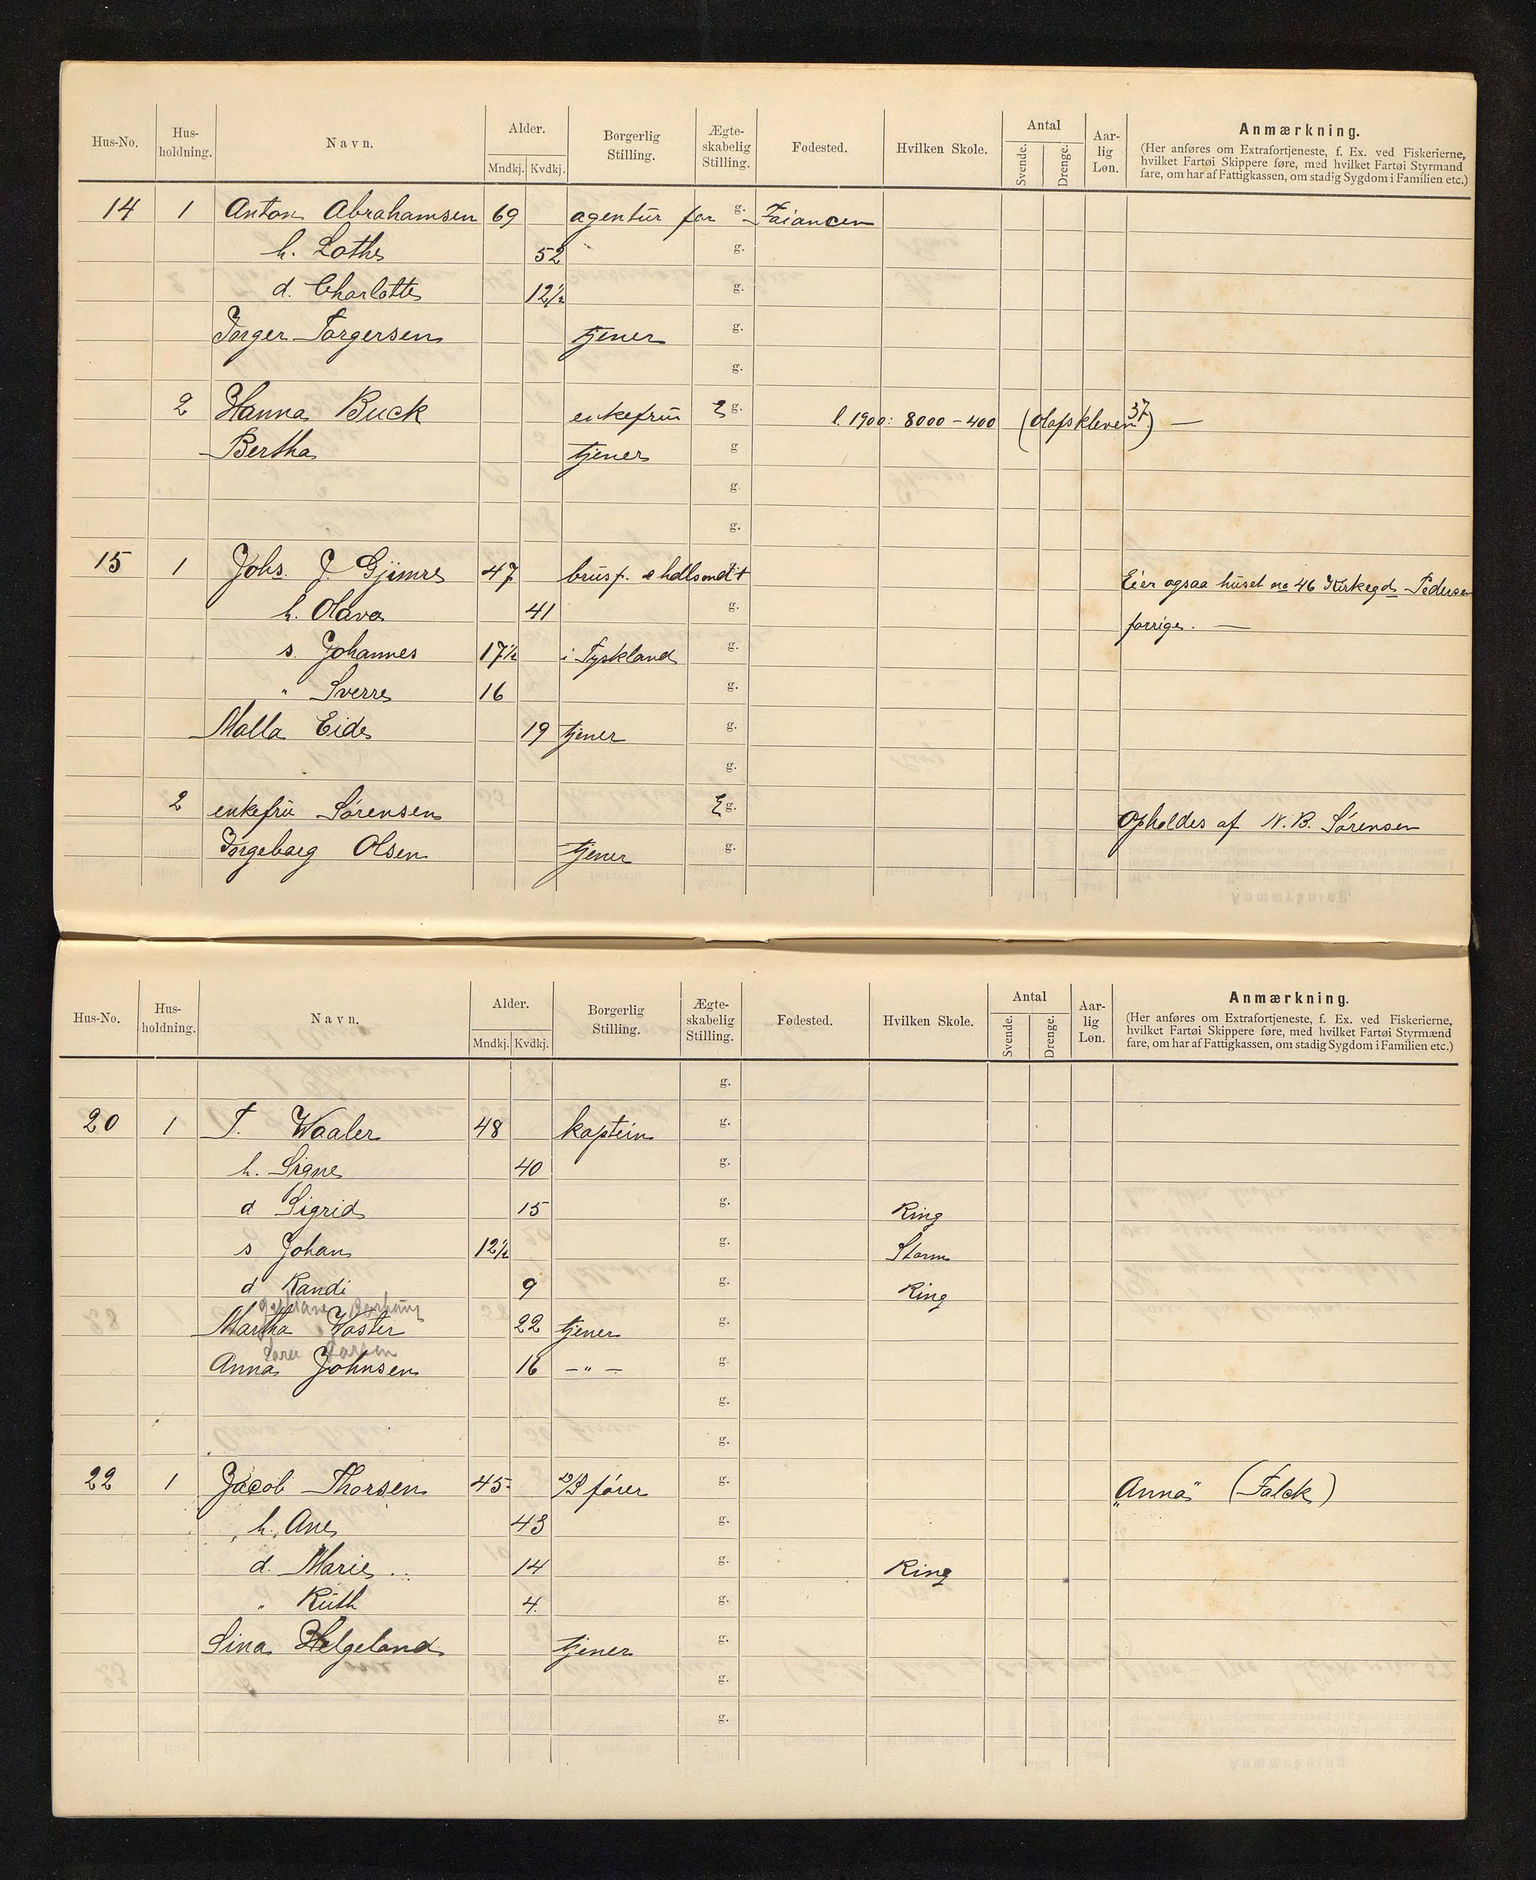 Hus-No. Hus-holdning. Navn. Alder. Mndkj. Kvdkj. Borgerlig Stilling. Ægte-skabelig Stilling. Fødested. Hvilken Skole. Antal Svende. Drenge. Aar-lig Løn. Anmærkning.
(Her anføres om Extrafortjeneste, f. Ex. ved Fiskerierne,
hvilket Fartøi Skippere føre, med hvilket Fartøi Styrmænd
fare, om har af Fattigkassen, om stadig Sygdom i Familien etc.)
14 1 Anton Abrahamsen 69 agentur for g. Faiancen
h. Lothe 52 g.
d. Charlotte 12½ g.
Torger Torgersen tjener g.
g.
2 Hanna Buck enkefru E g. l. 1900: 8000 – 400 (Olafskleven 37) —
Bertha tjener g
g.
g.
15 1 Johs. J. Gjimre 47 brusf. & hdlsmd + Eier ogsaa huset no 46 Kirkegd. Pedersen
h. Olava 41 g. forrige. —
s. Johannes 17½ i Tyskland g.
" Sverre 16 g.
Malla Eide 19 tjener g.
g.
2 enkefru Sørensen E g. Opholdes af N. B. Sørensen
Ingeborg Olsen tjener g.
Hus-No. Hus-holdning. Navn. Alder. Mndkj. Kvdkj. Borgerlig Stilling. Ægte-skabelig Stilling. Fødested. Hvilken Skole. Antal Svende. Drenge. Aar-lig Løn. Anmærkning.
(Her anføres om Extrafortjeneste, f. Ex. ved Fiskerierne,
hvilket Fartøi Skippere føre, med hvilket Fartøi Styrmænd
fare, om har af Fattigkassen, om stadig Sygdom i Familien etc.)
g.
20 1 T. Waaler 48 kaptein g.
h. Signe 40 g.
d Sigrid 15 g. Ring
s Johan 12½ g. Storm
d Randi 9 g. Ring
Martha Vaster 22 tjener g.
Larsen
Anna Johnsen 16 –"– g.
g.
g.
22 1 Jacob Thorsen 45 D/S fører g. "Anna" (Falck)
h. Ane 43 g.
d. Marie 14 g. Ring
" Ruth 4 g.
Sina Helgeland tjener g.
g.
g.